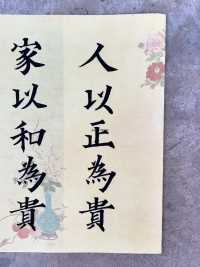 人以正為貴
家以和為貴